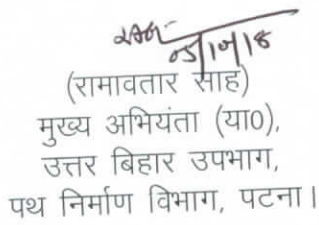 (रामावतार साह)
मुख्य अभियंता (या0),
उत्तर बिहार उपभाग,
पथ निर्माण विभाग, पटना।